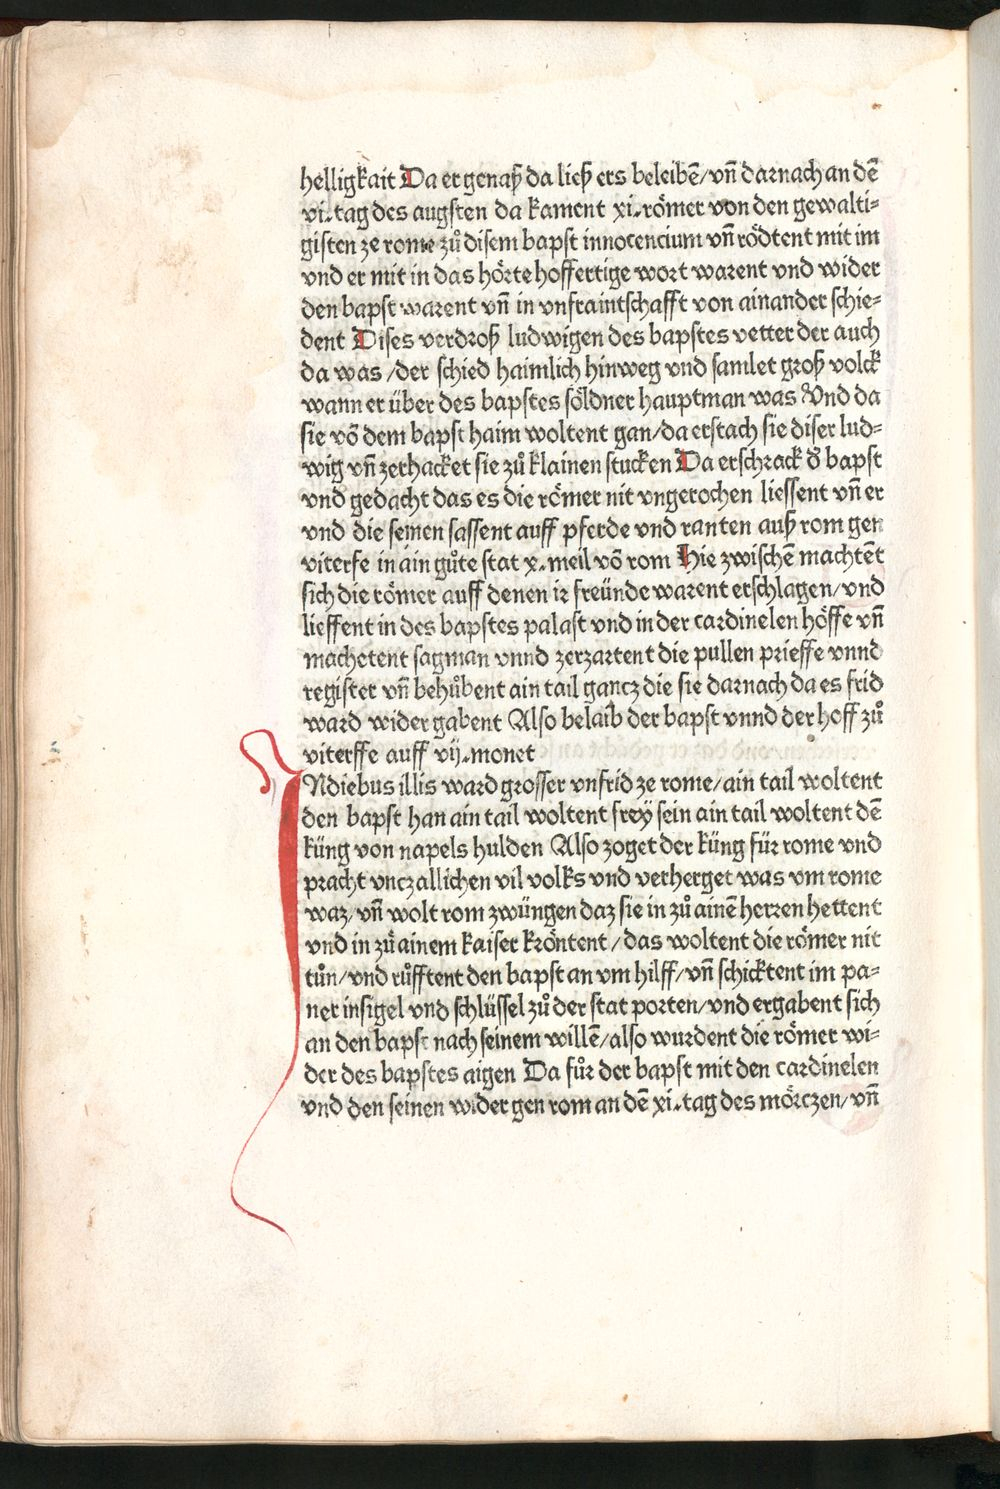 helligkait Da er genaß da ließ ers beleibē/ vñ darnach an dē
vi. tag des augsten da kament xi. römer von den gewalti⸗
gisten ze rome zů disem bapst innocencium vñ rödtent mit im
vnd er mit in das hörte hoffertige wort warent vnd wider
den bapst warent vñ in vnfraintschafft von ainander schie⸗
dent Dises verdroß ludwigen des bapstes vetter der auch
da was /der schied haimlich hinweg vnd samlet groß volck
wann er über des bapstes söldner hauptman was Vnd da
sie vō dem bapst haim woltent gan/ da erstach sie diser lud⸗
wig vñ zerhacket sie zů klainen stucken Da erschrack d̄ bapst
vnd gedacht das es die römer nit vngerochen liessent vñ er
vnd die seinen sassent auff pferde vnd ranten auß rom gen
viterfe in ain gůte stat x. meil vō rom Hie zwischē machtēt
sich die römer auff denen ir freünde warent erschlagen/ vnd
lieffent in des bapstes palast vnd in der cardinelen höffe vñ
machetent sagman vnnd zerzartent die pullen prieffe vnnd
register vñ behůbent ain tail gancz die sie darnach da es frid
ward wider gabent Also belaib der bapst vnnd der hoff zů
viterffe auff vij. monet
INdiebus illis ward grosser vnfrid ze rome/ ain tail woltent
den bapst han ain tail woltent frey sein ain tail woltent dē
küng von napels hulden Also zoget der küng für rome vnd
pracht vnczallichen vil volks vnd verherget was vm rome
waz/ vñ wolt rom zwüngen daz sie in zů ainē herren hettent
vnd in zů ainem kaiser kröntent / das woltent die römer nit
tůn/ vnd růfftent den bapst an vm hilff/ vñ schicktent im pa⸗
ner insigel vnd schlüssel zů der stat porten/ vnd ergabent sich
an den bapst nach seinem willē/ also wurdent die römer wi⸗
der des bapstes aigen Da fůr der bapst mit den cardinelen
vnd den seinen wider gen rom an dē xi. tag des mörczen/ vñ